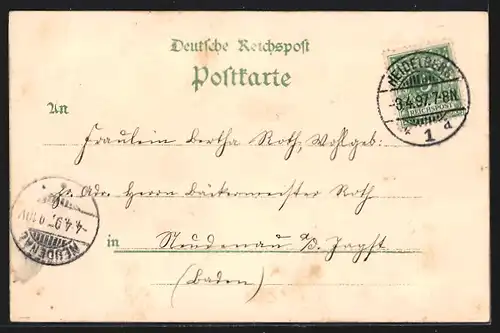 Deutsche Reichspost
Postkarte
HEIDELBERG
-3.4.97. 7-8N.
1 d
REICHSPOST
An
Fräulein Bertha Roth, Wohlgeb:
Adr. Herrn Bäckermeister Roth
in Neudenau a/d. Jagst
(Baden)
NEUDENAU
-4.4.97. 9-10V